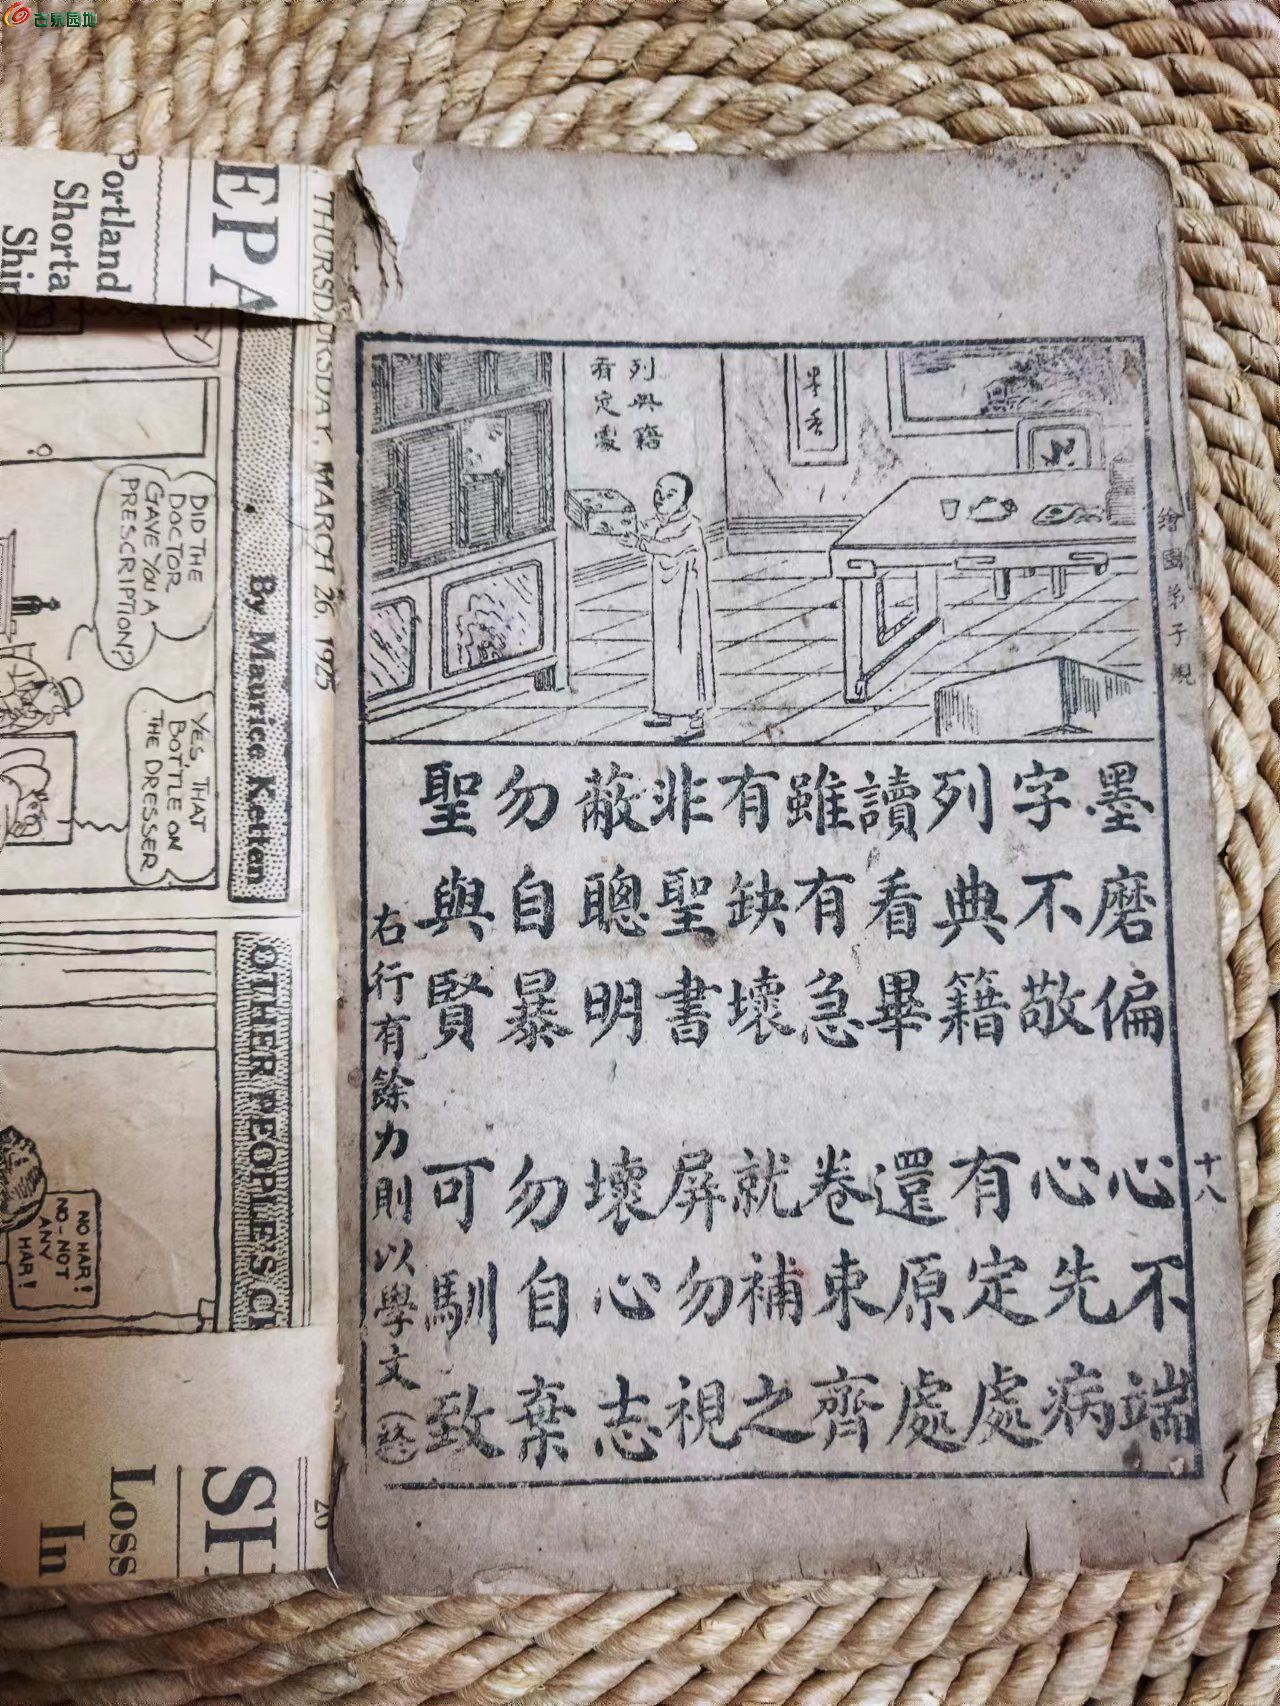 古泉园地
列典籍
有定處
繪圖弟子規
墨磨偏 心不端
字不敬 心先病
列典籍 有定處
讀看畢 還原處
雖有急 卷束齊
有缺壞 就補之
非聖書 屏勿視
蔽聰明 壞心志
勿自暴 勿自棄
聖與賢 可馴致
右行有餘力則以學文(終)
十八
EPA
Portland
Shorta
THURSDAY, MARCH 26, 1925
By Maurice Ketten
DID THE
DOCTOR
GAVE YOU A
PRESCRIPTION?
YES, THAT
BOTTLE ON
THE DRESSER
OTHER PEOPLE'S
NO HAR!
NO-NOT
ANY
HAR!
SH
Loss
In